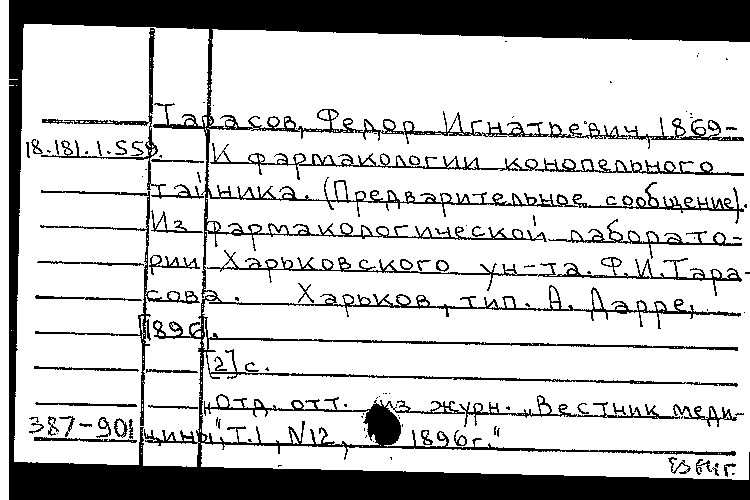 Тарасов, Федор Игнатьевич, 1869-
18.181.1.559. К фармакологии конопельного
тайника. (Предварительное сообщение).
Из фармакологической лаборато-
рии Харьковского ун-та. Ф.И. Тара-
сова. Харьков, тип. А. Дарре,
[1896].
[2] с.
„Отд. отт. из журн. „Вестник меди-
387-901 цины", Т.1, N12, 1896г."